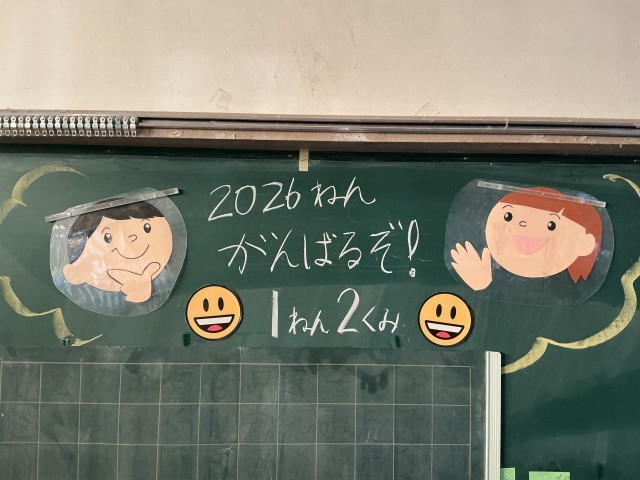 2026ねん
がんばるぞ!
1ねん2くみ